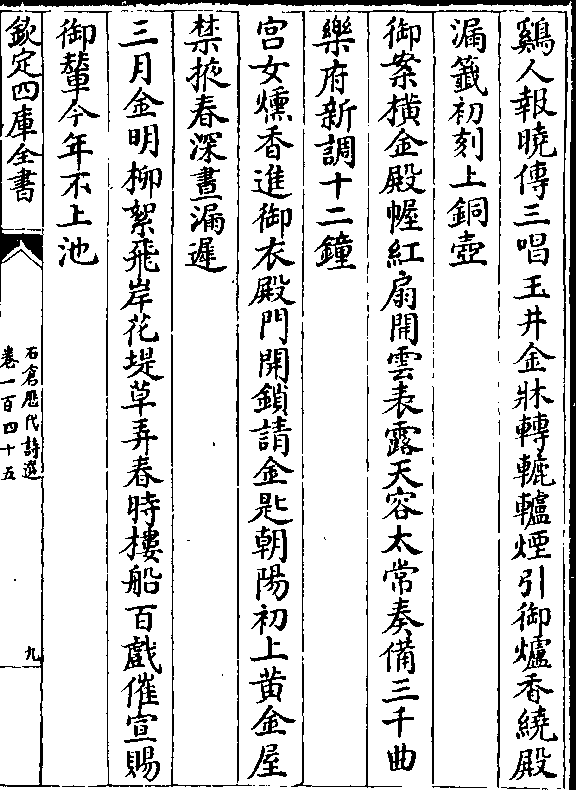 鷄人報曉傳三唱玉井金牀轉轆轤煙引御爐香繞殿
漏籤初刻上銅壺
御案横金殿幄紅扇開雲表露天容太常奏備三千曲
樂府新調十二鐘
宮女燻香進御衣殿門開鎖請金匙朝陽初上黄金屋
禁掖春深晝漏遲
三月金明柳絮飛岸花堤草弄春時樓船百戲催宣賜
御輦今年不上池
欽定四庫全書
石倉歴代詩選
卷一百四十五
九